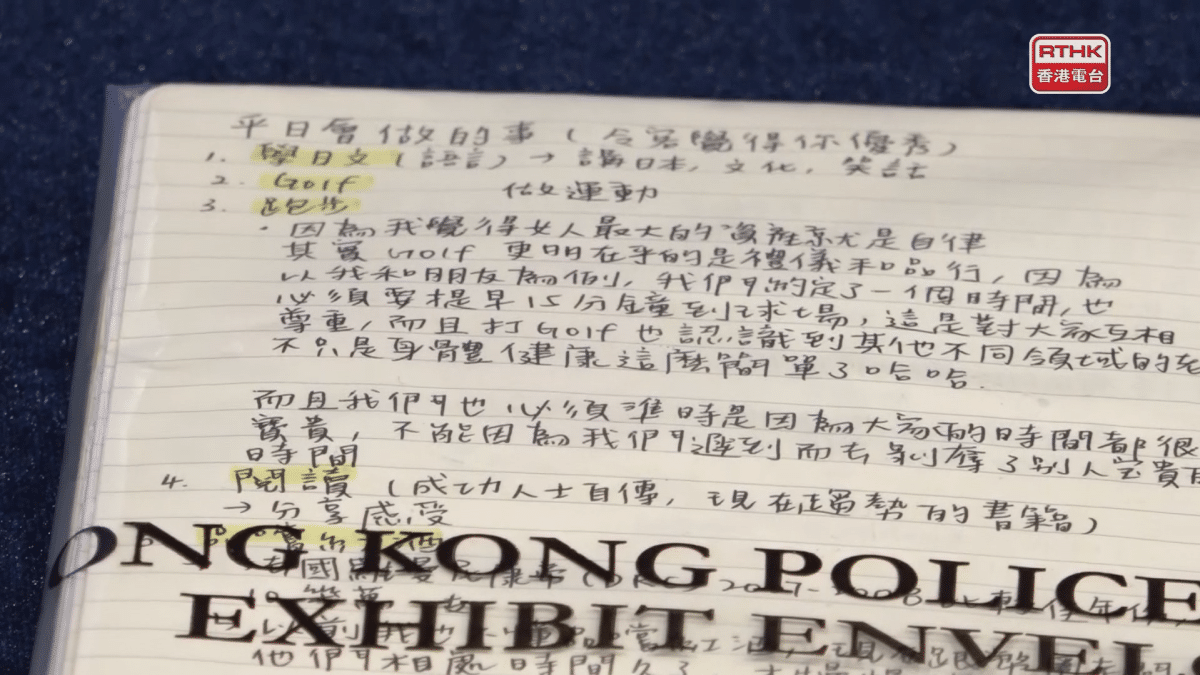 RTHK
香港電台
平日會做的事（令客覺得你優秀）
1. 學日文（語言）→ 講日本，文化，笑話
2. Golf
做運動
3. 跑步
· 因為我覺得女人最大的資產就是自律
其實 Golf 更明在乎的是禮儀和品行，因為
以我和朋友為例，我們約定了一個時間，也
必須要提早15分鐘到球場，這是對大家互相
尊重，而且打Golf也認識到其他不同領域的
不只是身體健康這麼簡單了哈哈.
而且我們也必須準時是因為大家的時間都很
寶貴，不能因為我們遲到而去剝奪了別人寶貴
時間
4. 閱讀（成功人士自傳，現在趨勢的書籍）
→ 分享感受
ONG KONG POLICE
EXHIBIT ENVEL
他們相處時間久了